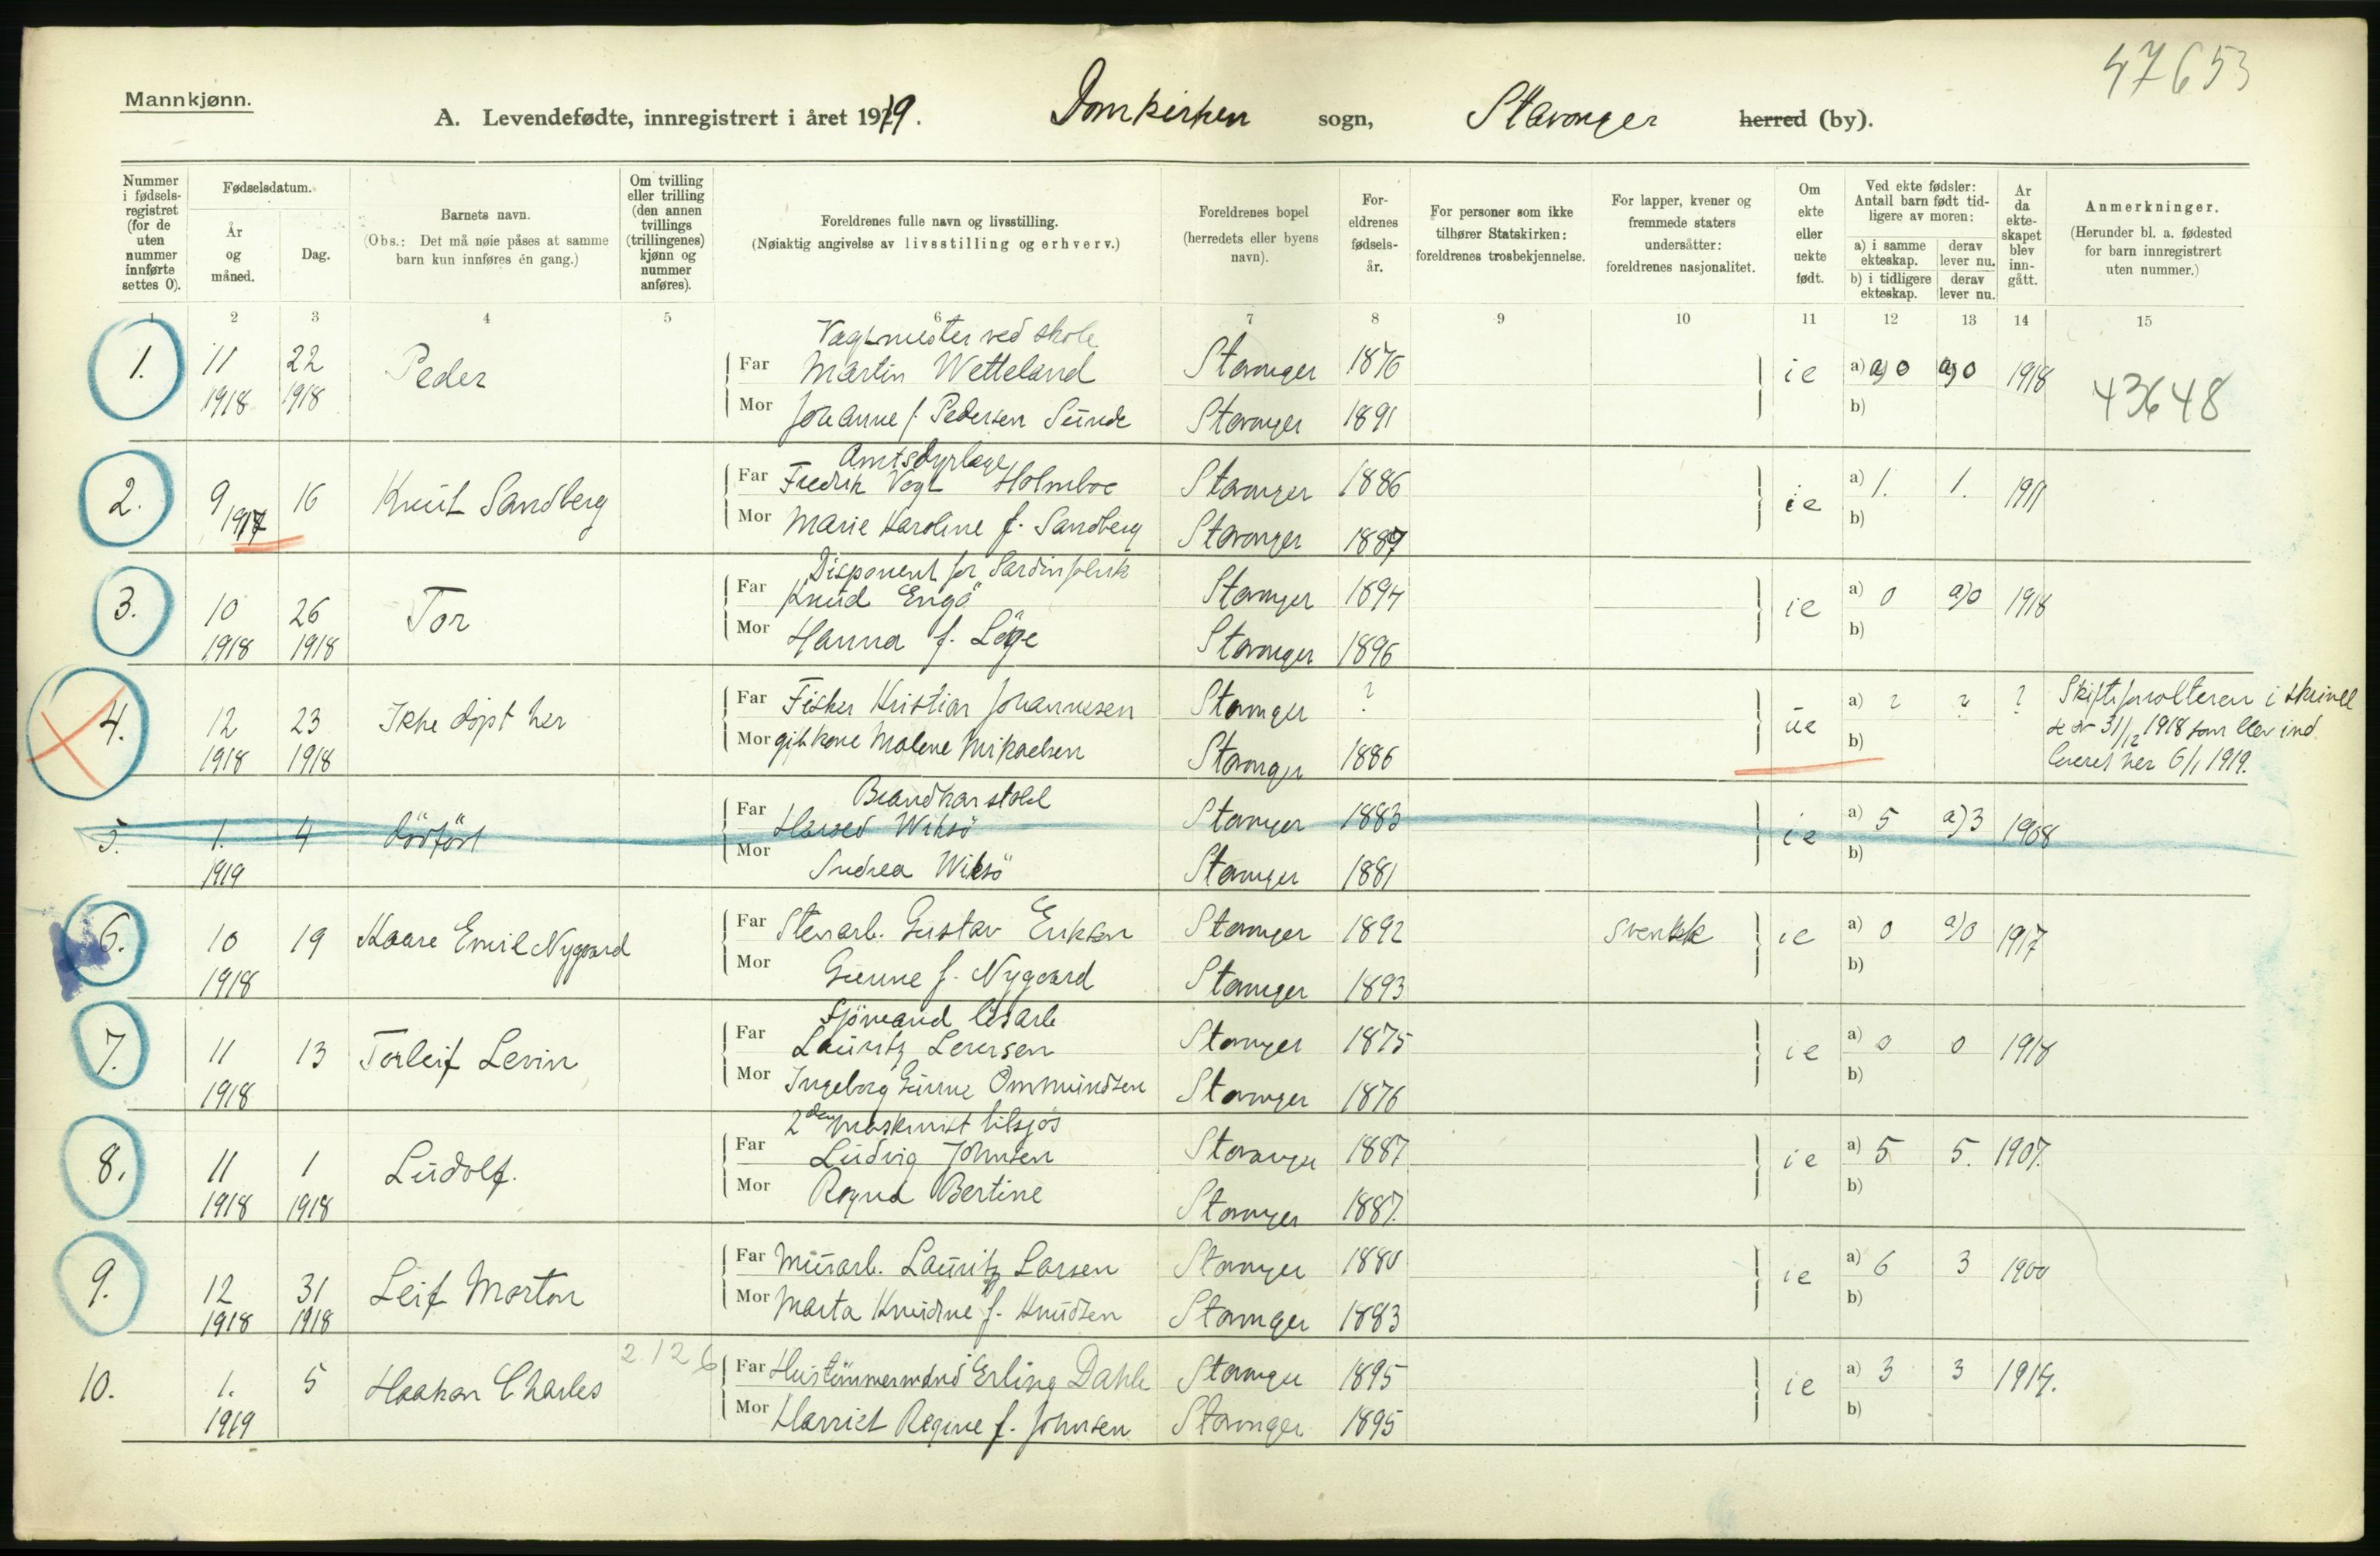 47653
Mannkjønn.
A. Levendefødte, innregistrert i året 1919. Domkirken sogn, Stavanger herred (by).
Nummer i fødselsregistret (for de uten nummer innførte settes 0).
Fødselsdatum.
År og måned.
Dag.
Barnets navn.
(Obs.: Det må nøie påses at samme barn kun innføres én gang.)
Om tvilling eller trilling (den annen tvillings (trillingenes) kjønn og nummer anføres).
Foreldrenes fulle navn og livsstilling.
(Nøiaktig angivelse av livsstilling og erhverv.)
Foreldrenes bopel (herredets eller byens navn).
Foreldrenes fødselsår.
For personer som ikke tilhører Statskirken: foreldrenes trosbekjennelse.
For lapper, kvener og fremmede staters undersåtter: foreldrenes nasjonalitet.
Om ekte eller uekte født.
Ved ekte fødsler: Antall barn født tidligere av moren:
a) i samme ekteskap. derav lever nu.
b) i tidligere ekteskap. derav lever nu.
År da ekteskapet blev inngått.
Anmerkninger.
(Herunder bl. a. fødested for barn innregistrert uten nummer.)
1 2 3 4 5 6 7 8 9 10 11 12 13 14 15
Vagtmester ved skole
1. 11 22 Peder Far Martin Wetteland Stavanger 1876 ie a) a) 0 a) 0 1918
1918 1918 Mor Johanne f. Pedersen Sunde Stavanger 1891 b) 43648
Amtsdyrlæge
2. 9 16 Knut Sandberg Far Fredrik Vogt Holmboe Stavanger 1886 ie a) 1. 1. 1911
1917 Mor Marie Karoline f. Sandberg Stavanger 1887 b)
Disponent for Sardinfabrik
3. 10 26 Tor Far Knud Engö Stavanger 1894 ie a) 0 a) 0 1918
1918 1918 Mor Hanna f. Stavanger 1896 b)
4. 12 23 Ikke döpt her Far Fisker Kristian Johannesen Stavanger ? ue a) ? ? ? i skrivel
1918 1918 Mor gift kone Malene Mikaelsen Stavanger 1886 b) se av 31/12 1918 som blev ind
leveret her 6/1 1919.
Brandkonstabel
5. 1. 4 dödfört Far Wiksö Stavanger 1883 ie a) 5 a) 3 1908
1919 Mor Andrea Wiksö Stavanger 1881 b)
6. 10 19 Kaare Emil Nygaard Far Stenarb. Gustav Erikson Stavanger 1892 Svensk ie a) 0 a) 0 1917
1918 Mor Gunne f. Nygaard Stavanger 1893 b)
Sjömand lösarb
7. 11 13 Torleif Levin Far Lauritz Stavanger 1875 ie a) 0 0 1918
1918 Mor Ingeborg Gunne Ommundsen Stavanger 1876 b)
2den maskinist tilsjös
8. 11 1 Ludolf. Far Ludvig Johnsen Stavanger 1887 ie a) 5 5. 1907.
1918 1918 Mor Ragna Bertine Stavanger 1887. b)
9. 12 31 Leif Morton Far Murarb. Lauritz Larsen Stavanger 1880 ie a) 6 3 1900
1918 1918 Mor Marta Knudine f. Knudsen Stavanger 1883 b)
2126
10. 1. 5 Haakon Charles Far Hustömmermand Erling Dahle Stavanger 1895 ie a) 3 3 1914.
1919 Mor Harriet Regine f. Johnsen Stavanger 1895 b)